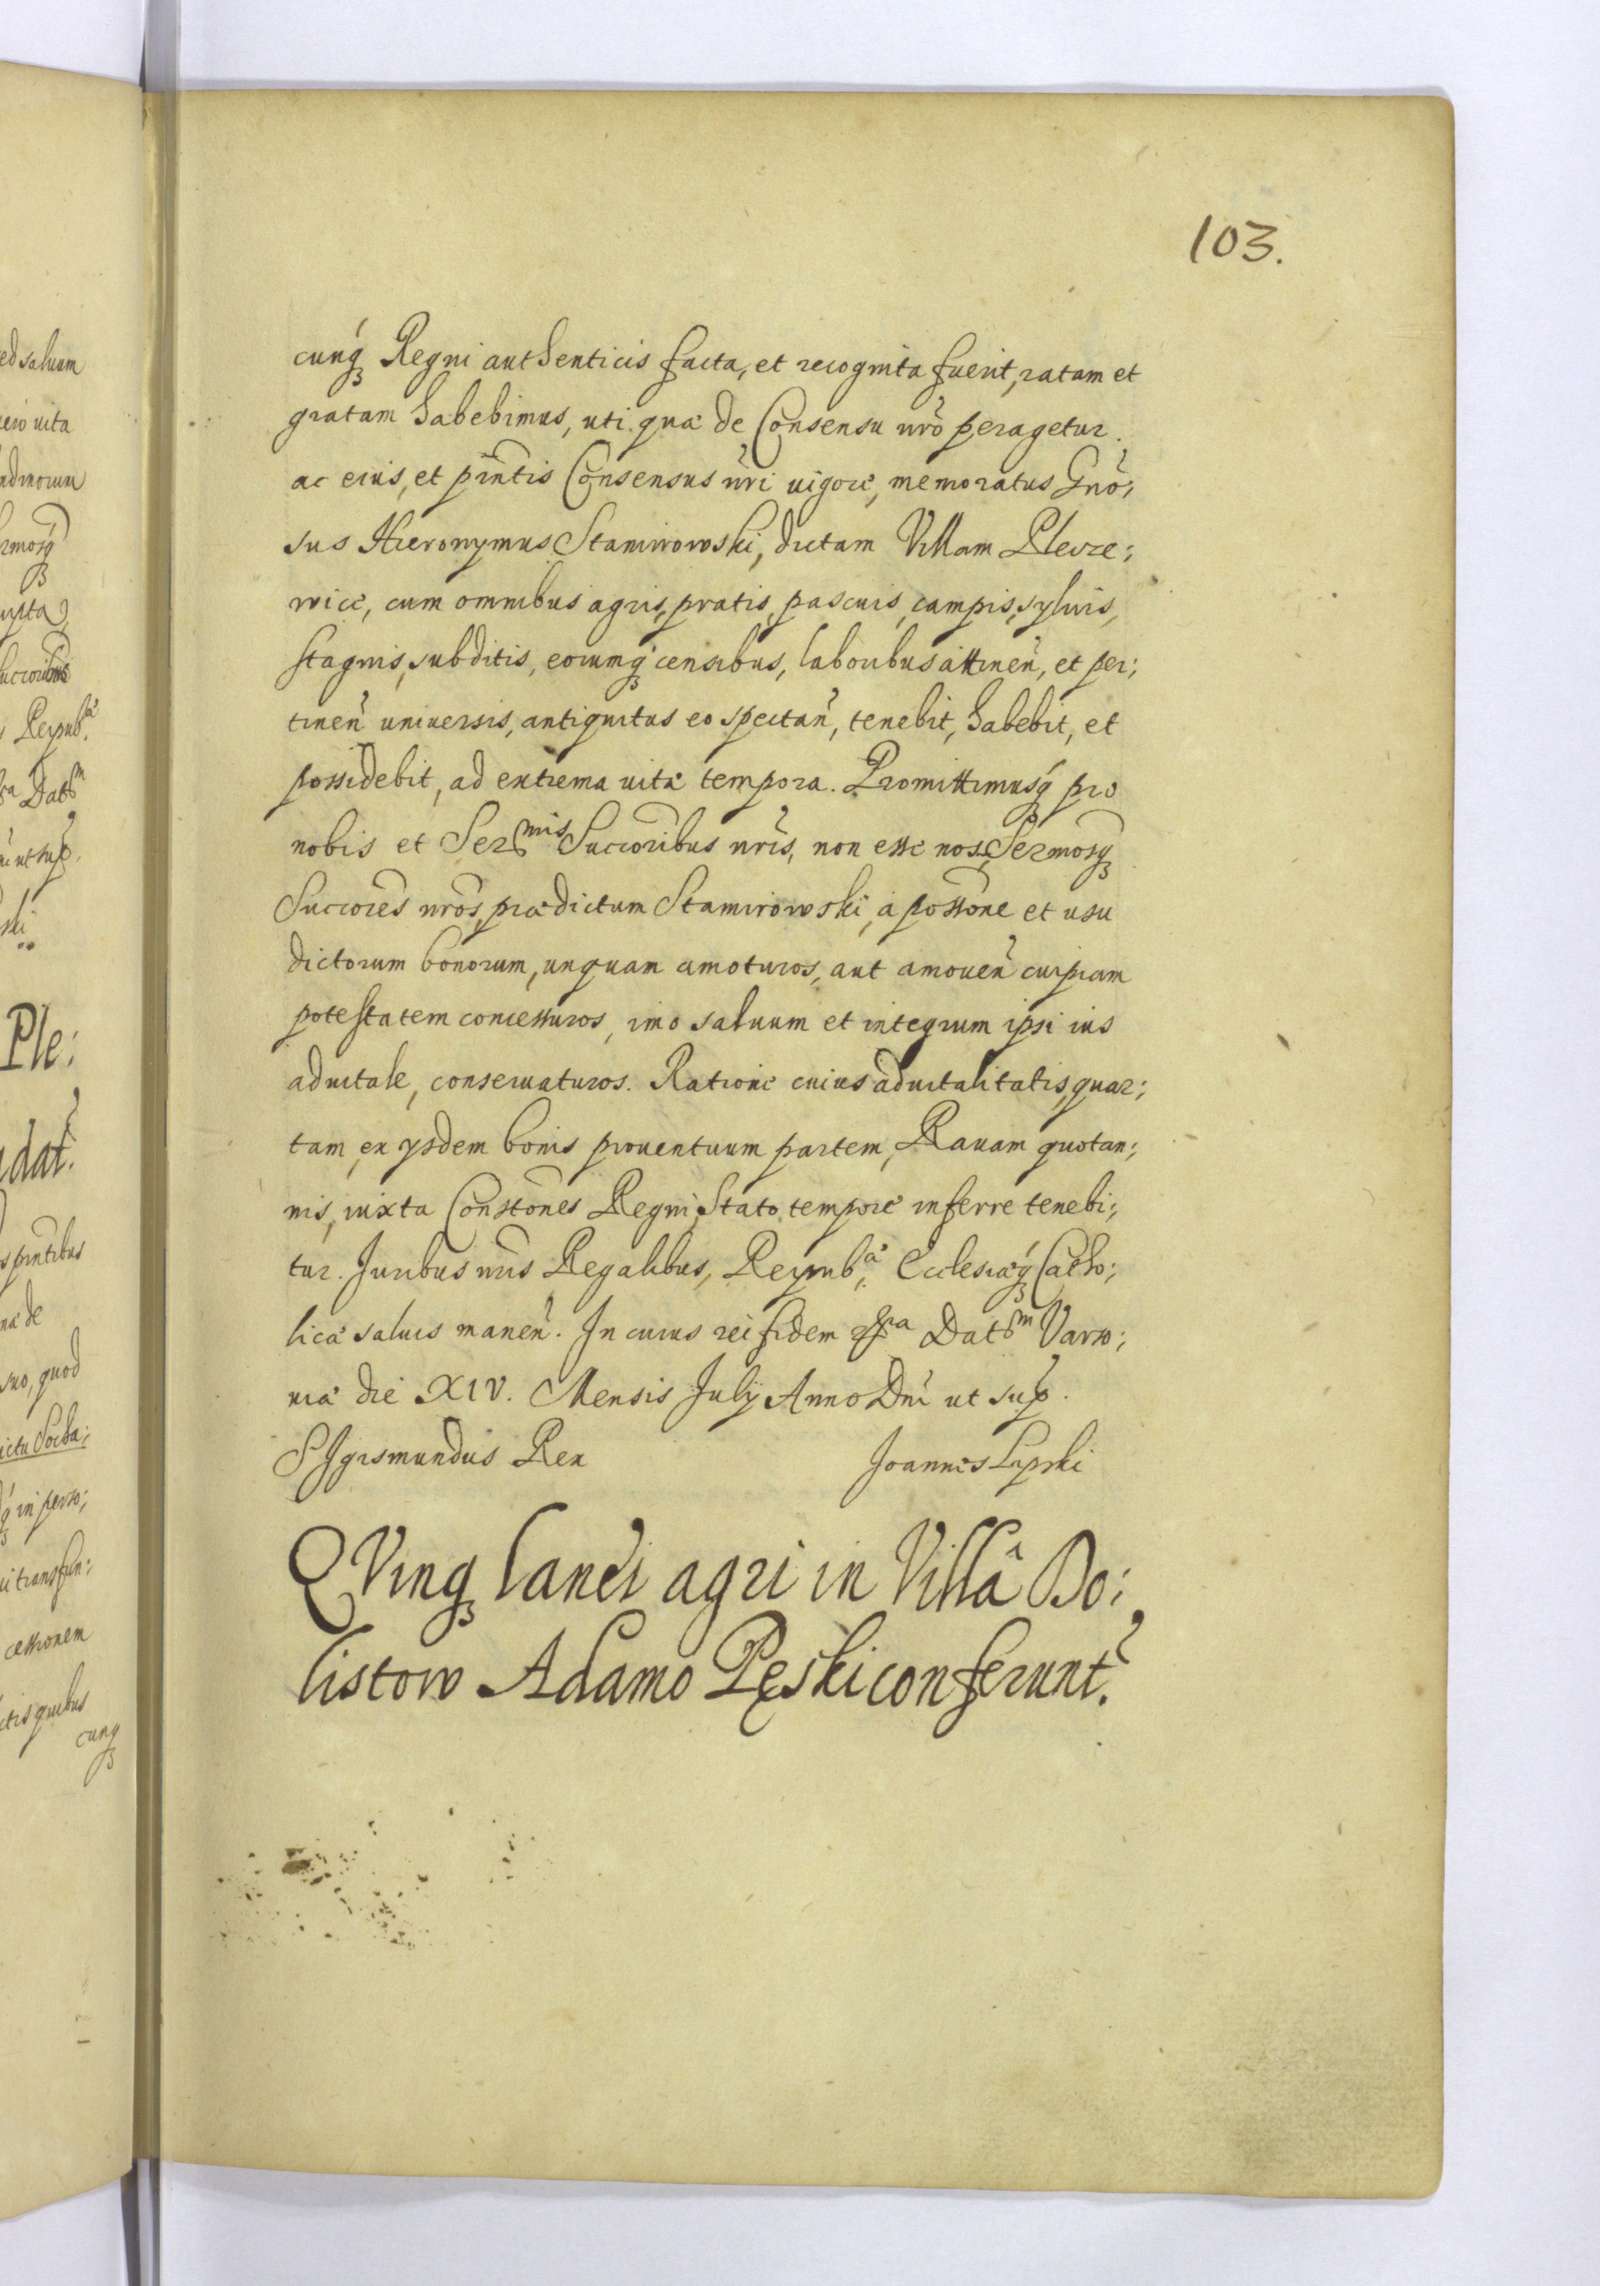 103.
cunq́ Regni authenticis facta, et recognita fuerit, ratam et
gratam habebimus, uti quæ de Consensu nr̃o peragetur.
ac eius, et pñtis Consensus nr̃i uigore, memoratus Gnõ;
sus Hieronymus Stamirowski, dictam Villam Plewze;
wice, cum omnibus agris, pratis, pascuis, campis, syluis,
stagnis, subditis, eorumq́ censibus, laboribus attineñ, et per;
tineñ uniuersis, antiquitus eo spectañ, tenebit, habebit, et
possidebit, ad extrema uitæ tempora. Promittimusq́ pro
nobis et Ser mis Succoribus nr̃is, non esse nos, Sermosq́
Succores nr̃os, prædictum Stamirowski, à possone et usu
dictorum bonorum, unquam amoturos, aut amoueñ cuipiam
potestatem concessuros, imo saluum et integrum ipsi ius
aduitale, conseruaturos. Ratione cuius aduitalitatis, quar;
tam, ex ysdem bonis prouentuum partem, Rauam quotan;
nis, iuxta Constones Regni, Stato tempore inferre tenebi;
tur. Iuribus nr̃is Regalibus, Reipub æ, Ecclesiæq́ Catho;
licæ saluis maneñ. In cuius rei fidem Dat m Varso;
uiæ die XIV. Mensis July Anno Dñi ut sup.
SIgismundus Rex Joannes Lipski
QVinq́ lanei agri in Villâ Do;
listow Adamo Pęski conferunt̃.
ed saluum
uita
Reipub. æ
Dat m
ut sup.
ski
Ple:
dat.
pñtibus
de
suo, quod
in perso;
transfun;
cessionem
quibus
cunq́